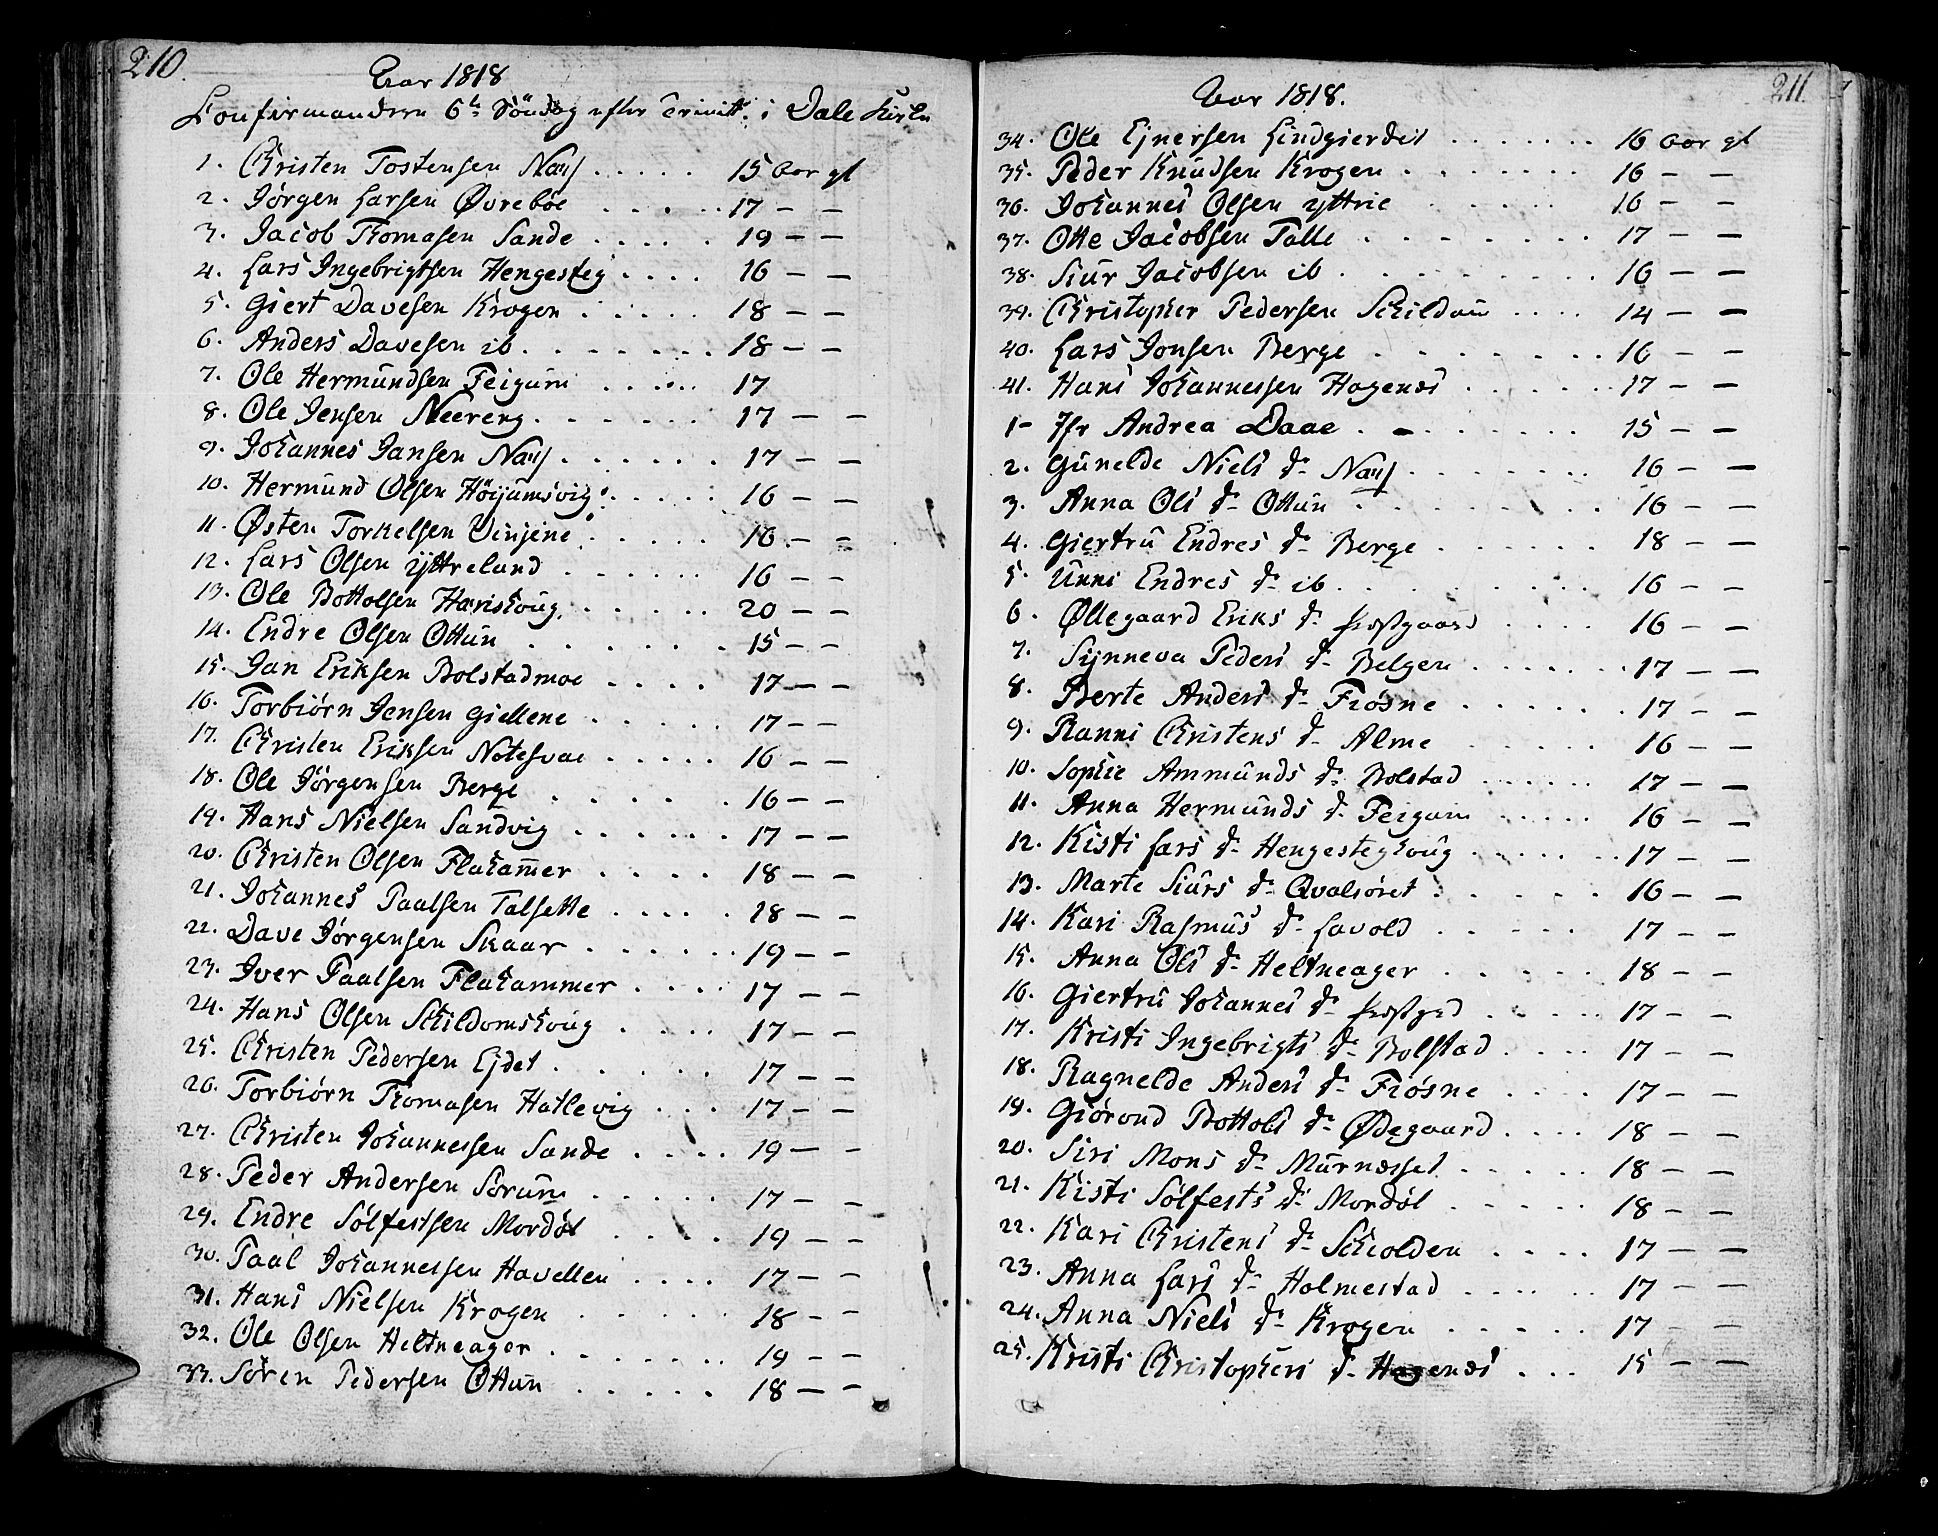 210.
Aar 1818
Confirmanderne 6te Søndag efter Trinit. i Dale Kirke
1. Christen Tostensen Næss ..... 15 aar gl
2. Jørgen Larsen Øvrebøe ..... 17 — —
3. Jacob Thomasen Sande ..... 19 — —
4. Lars Ingebrigtsen Hengesteg .... 16 — —
5. Giert Davesen Krogen ..... 18 — —
6. Anders Davesen ib. ....... 18 — —
7. Ole Hermundsen Feigum ..... 17
8. Ole Jensen Neereng. ...... 17 — —
9. Johannes Jansen Næss ...... 17 — —
10. Hermund Olsen Höijumsvig ..... 16 — —
11. Østen Torkelsen Vinjene ..... 16 — —
12. Lars Olsen Yttrelund ..... 16 — —
13. Ole Bottolsen Harishoug ..... 20 — —
14. Endre Olsen Ottun ...... 15 — —
15. Jan Eriksen Bolstadmoe .... 17 — —
16. Torbiørn Jensen Giellene ..... 17 — —
17. Christen Eriksen Notesvae ..... 16 — —
18. Ole Jörgensen Berge ...... 16 — —
19. Hans Nielsen Sandvig ...... 17 — —
20. Christen Olsen Flahamer ..... 18 — —
21. Johannes Paalsen Talsette .... 18 — —
22. Dave Jörgensen Skaar ..... 19 — —
23. Iver Paalsen Flahammer .... 17 — —
24. Hans Olsen Schildomshoug .... 17 — —
25. Christen Pedersen Ejdet ...... 17 — —
26. Torbiörn Thomasen Hatlevig ... 17 — —
27. Christen Johannessen Sande .... 19 — —
28. Peder Andersen Sorum ..... 17 — —
29. Endre Sölfestsen Mordöl .... 19 — —
30. Paal Johannessen Havellen .... 17 — —
31. Hans Nielsen Krogen ..... 18 — —
32. Ole Olsen Heltneager ...... 19 — —
33. Sören Pedersen Ottun ..... 18 — —
211
Aar 1818.
34. Ole Ejnersen Lindgierdet ....... 16 aar gl
35. Peder Knudsen Krogen ....... 16 — —
36. Johannes Olsen Yttrie ..... 16 — —
37. Otte Jacobsen Talle ....... 17 — —
38. Siur Jacobsen ib ........ 16 — —
39. Christopher Pedersen Schildum .... 14 — —
40. Lars Jonsen Berge ....... 16 — —
41. Hans Johannessen Hagenæs ...... 17 — —
1 - Jfr Andrea Daae ....... 15 — —
2. Gunelde Niels d. Næss ....... 16 — —
3. Anna Ols d. Ottun ....... 16 — —
4. Giertru Endres d. Berge ...... 18 — —
5. Unni Endres d. ib ........ 16 — —
6. Øllegaard Eriks d. Prestgaard .... 16 — —
7. Synneva Peders d. Bolgen ...... 17 — —
8. Berte Anders d. Fiøsne ...... 17 — —
9. Ranni Christens d. Alme ..... 16 — —
10. Sophie Ammunds d. Bolstad ...... 17 — —
11. Anna Hermunds d. Feigum ..... 16 — —
12. Kisti Lars d. Hengesteghoug ...... 17 — —
13. Marte Siurs d. Qvalsøret ...... 16 — —
14. Kari Rasmus d. Lavold ..... 17 — —
15. Anna Ols d. Heltneager ..... 18 — —
16. Giertru Johannes d. Prestgrd ..... 17 — —
17. Kristi Ingebrigts d. Bolstad .... 17 — —
18. Ragnelde Anders d. Fiøsne .... 17 — —
19. Giörond Bottols d. Ødegaard .... 18 — —
20. Siri Mons d. Murnæsset ...... 18 — —
21. Kisti Sölfests d. Mordöl ..... 18 — —
22. Kari Christens d. Schiolden .... 17 — —
23. Anna Lars d. Holmestad ..... 17 — —
24. Anna Niels d. Krogen ..... 17 — —
25. Kristi Christophers d. Hagenæs ... 15 — —